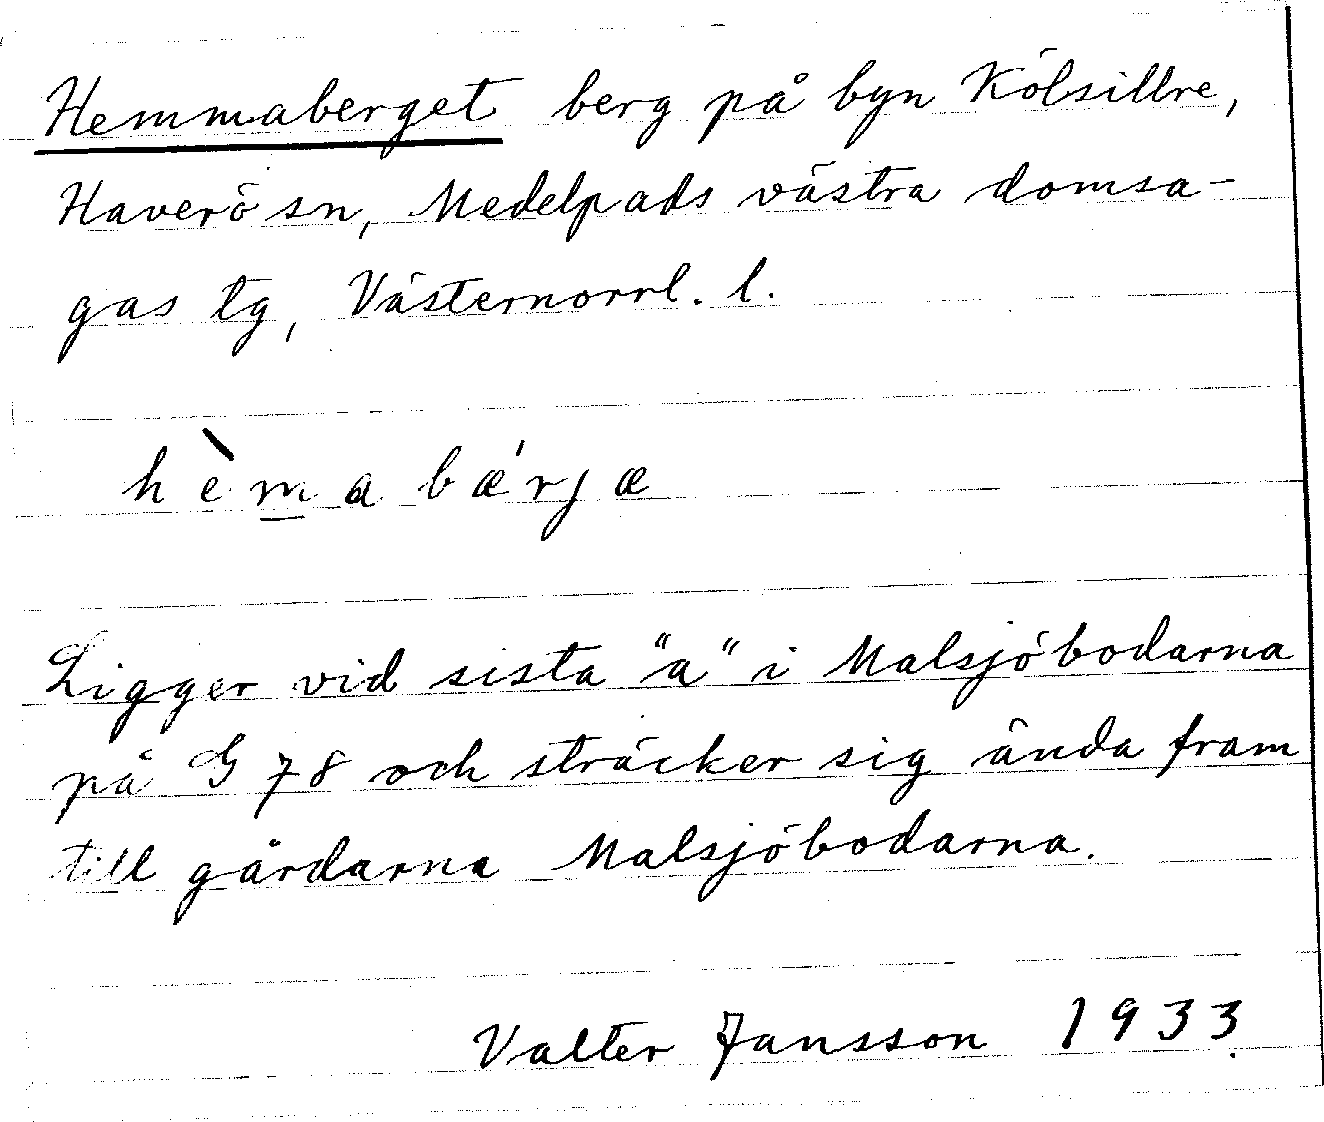 Hemmaberget berg på byn Kölsillre,
Haverö sn, Medelpads västra domsa-
gas tg, Västernorrl. l.
hèmabǽrjæ
Ligger vid sista "a" i Malsjöbodarna
på G 78 och sträcker sig ända fram
till gårdarna Malsjöbodarna.
Valter Jansson 1933.